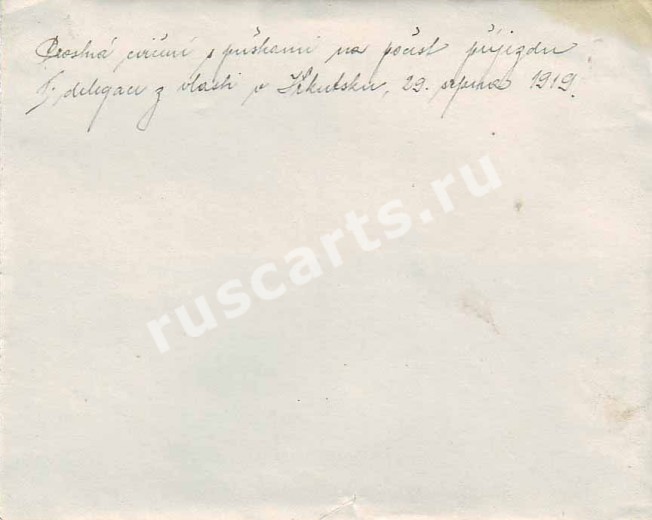 Prostná cvičení s puškami na počest příjezdu
I. delegace z vlasti v Irkutsku, 29. srpna 1919.
ruscarts.ru